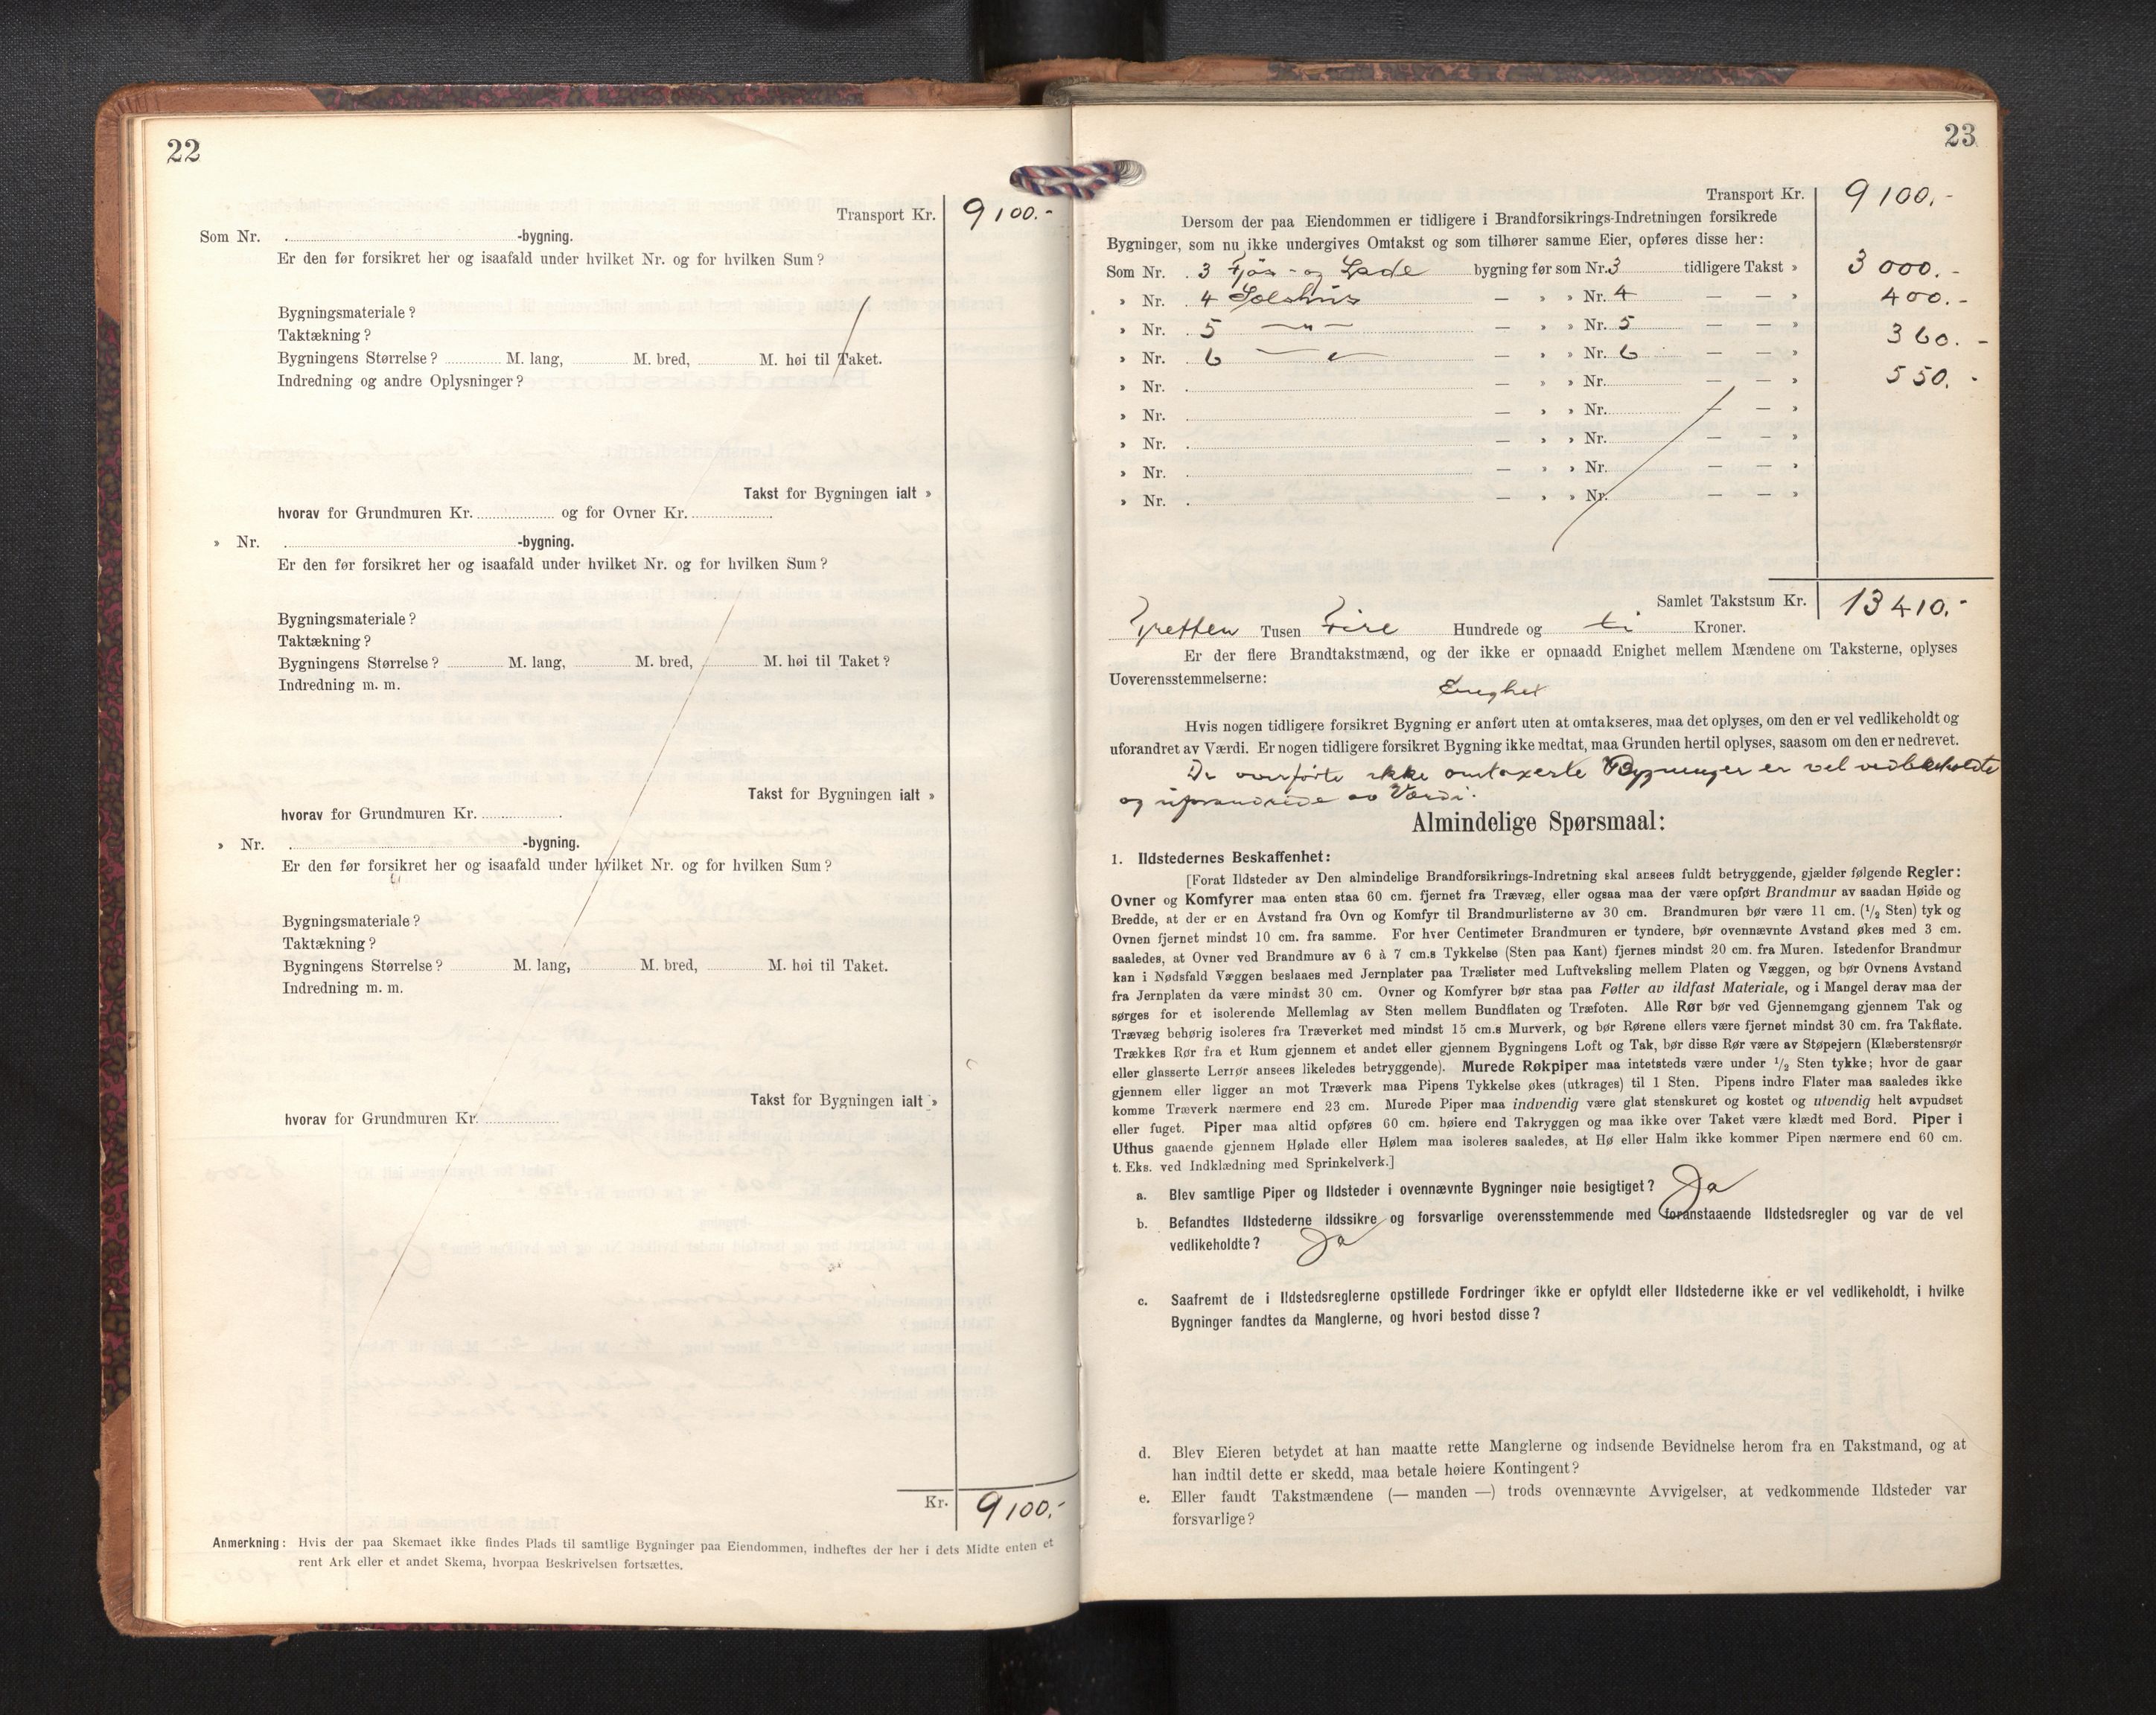 22
Transport Kr. 9100.-
Som Nr. -bygning.
Er den før forsikret her og isaafald under hvilket Nr. og for hvilken Sum?
Bygningsmateriale?
Taktækning?
Bygningens Størrelse? M. lang, M. bred, M. høi til Taket.
Indredning og andre Oplysninger?
Takst for Bygningen ialt »
hvorav for Grundmuren Kr. og for Ovner Kr.
» Nr. -bygning.
Er den før forsikret her og isaafald under hvilket Nr. og for hvilken Sum?
Bygningsmateriale?
Taktækning?
Bygningens Størrelse? M. lang, M. bred, M. høi til Taket?
Indredning m. m.
Takst for Bygningen ialt »
hvorav for Grundmuren Kr.
» Nr. -bygning.
Er den før forsikret her og isaafald under hvilket Nr. og for hvilken Sum?
Bygningsmateriale?
Taktækning?
Bygningens Størrelse? M. lang, M. bred, M. høi til Taket.
Indredning m. m.
Takst for Bygningen ialt »
hvorav for Grundmuren Kr.
Kr. 9100.-
Anmerkning: Hvis der paa Skemaet ikke findes Plads til samtlige Bygninger paa Eiendommen, indheftes der her i dets Midte enten et
rent Ark eller et andet Skema, hvorpaa Beskrivelsen fortsættes.
23
Transport Kr. 9100.-
Dersom der paa Eiendommen er tidligere i Brandforsikrings-Indretningen forsikrede
Bygninger, som nu ikke undergives Omtakst og som tilhører samme Eier, opføres disse her:
Som Nr. 3 Fjøs- og Lade bygning før som Nr. 3 tidligere Takst » 3000.-
» Nr. 4 Solshus — » » Nr. 4 — — » 400.-
» Nr. 5 —"— — » » Nr. 5 — — » 360.-
» Nr. 6 —"— — » » Nr. 6 — — » 550.-
» Nr. — » » Nr. — — »
» Nr. — » » Nr. — — »
» Nr. — » » Nr. — — »
» Nr. — » » Nr. — — »
» Nr. — » » Nr. — — »
Samlet Takstsum Kr. 13410.-
Tretten Tusen Fire Hundrede og ti Kroner.
Er der flere Brandtakstmænd, og der ikke er opnaadd Enighet mellem Mændene om Taksterne, oplyses
Uoverensstemmelserne:
Enighet
Hvis nogen tidligere forsikret Bygning er anført uten at omtakseres, maa det oplyses, om den er vel vedlikeholdt og
uforandret av Værdi. Er nogen tidligere forsikret Bygning ikke medtat, maa Grunden hertil oplyses, saasom om den er nedrevet.
De overførte ikke omtaxerte Bygninger er vel vedlikeholdte
og uforandrede av Værdi.
Almindelige Spørsmaal:
1. Ildstedernes Beskaffenhet:
[Forat Ildsteder av Den almindelige Brandforsikrings-Indretning skal ansees fuldt betryggende, gjælder følgende Regler:
Ovner og Komfyrer maa enten staa 60 cm. fjernet fra Trævæg, eller ogsaa maa der være opført Brandmur av saadan Høide og
Bredde, at der er en Avstand fra Ovn og Komfyr til Brandmurlisterne av 30 cm. Brandmuren bør være 11 cm. (1/2 Sten) tyk og
Ovnen fjernet mindst 10 cm. fra samme. For hver Centimeter Brandmuren er tyndere, bør ovennævnte Avstand økes med 3 cm.
saaledes, at Ovner ved Brandmure av 6 à 7 cm.s Tykkelse (Sten paa Kant) fjernes mindst 20 cm. fra Muren. Istedenfor Brandmur
kan i Nødsfald Væggen beslaaes med Jernplater paa Trælister med Luftveksling mellem Platen og Væggen, og bør Ovnens Avstand
fra Jernplaten da være mindst 30 cm. Ovner og Komfyrer bør staa paa Føtter av ildfast Materiale, og i Mangel derav maa der
sørges for et isolerende Mellemlag av Sten mellem Bundflaten og Træfoten. Alle Rør bør ved Gjennemgang gjennem Tak og
Trævæg behørig isoleres fra Træverket med mindst 15 cm.s Murverk, og bør Rørene ellers være fjernet mindst 30 cm. fra Takflate.
Trækkes Rør fra et Rum gjennem et andet eller gjennem Bygningens Loft og Tak, bør disse Rør være av Støpejern (Klæberstensrør
eller glasserte Lerrør ansees likeledes betryggende). Murede Røkpiper maa intetsteds være under 1/2 Sten tykke; hvor de gaar
gjennem eller ligger an mot Træverk maa Pipens Tykkelse økes (utkrages) til 1 Sten. Pipens indre Flater maa saaledes ikke
komme Træverk nærmere end 23 cm. Murede Piper maa indvendig være glat stenskuret og kostet og utvendig helt avpudset
eller fuget. Piper maa altid opføres 60 cm. høiere end Takryggen og maa ikke over Taket være klædt med Bord. Piper i
Uthus gaaende gjennem Hølade eller Hølem maa isoleres saaledes, at Hø eller Halm ikke kommer Pipen nærmere end 60 cm.
t. Eks. ved Indklædning med Sprinkelverk.]
a. Blev samtlige Piper og Ildsteder i ovennævnte Bygninger nøie besigtiget? Ja
b. Befandtes Ildstederne ildssikre og forsvarlige overensstemmende med foranstaaende Ildstedsregler og var de vel
vedlikeholdte? Ja
c. Saafremt de i Ildstedsreglerne opstillede Fordringer ikke er opfyldt eller Ildstederne ikke er vel vedlikeholdt, i hvilke
Bygninger fandtes da Manglerne, og hvori bestod disse?
d. Blev Eieren betydet at han maatte rette Manglerne og indsende Bevidnelse herom fra en Takstmand, og at
han indtil dette er skedd, maa betale høiere Kontingent?
e. Eller fandt Takstmændene (— manden —) trods ovennævnte Avvigelser, at vedkommende Ildsteder var
forsvarlige?